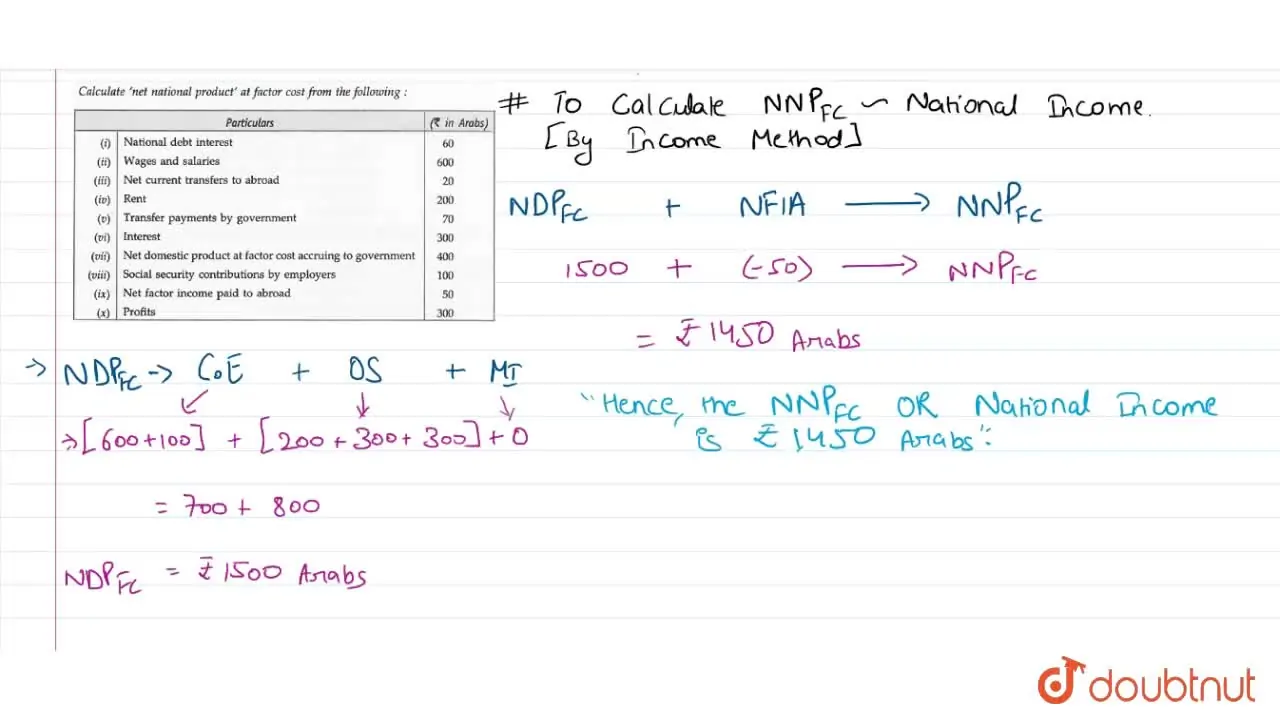 Calculate 'net national product' at factor cost from the following :
Particulars (₹ in Arabs)
(i) National debt interest 60
(ii) Wages and salaries 600
(iii) Net current transfers to abroad 20
(iv) Rent 200
(v) Transfer payments by government 70
(vi) Interest 300
(vii) Net domestic product at factor cost accruing to government 400
(viii) Social security contributions by employers 100
(ix) Net factor income paid to abroad 50
(x) Profits 300
# To Calculate NNPFC ~ National Income.
[By Income Method]
NDPFC + NFIA → NNPFC
1500 + (-50) → NNPFC
= ₹1450 Arabs
"Hence, the NNPFC OR National Income
is ₹1450 Arabs".
→ NDPFC → CoE + OS + MI
→ [600+100] + [200+300+300] + 0
= 700 + 800
NDPFC = ₹1500 Arabs
doubtnut